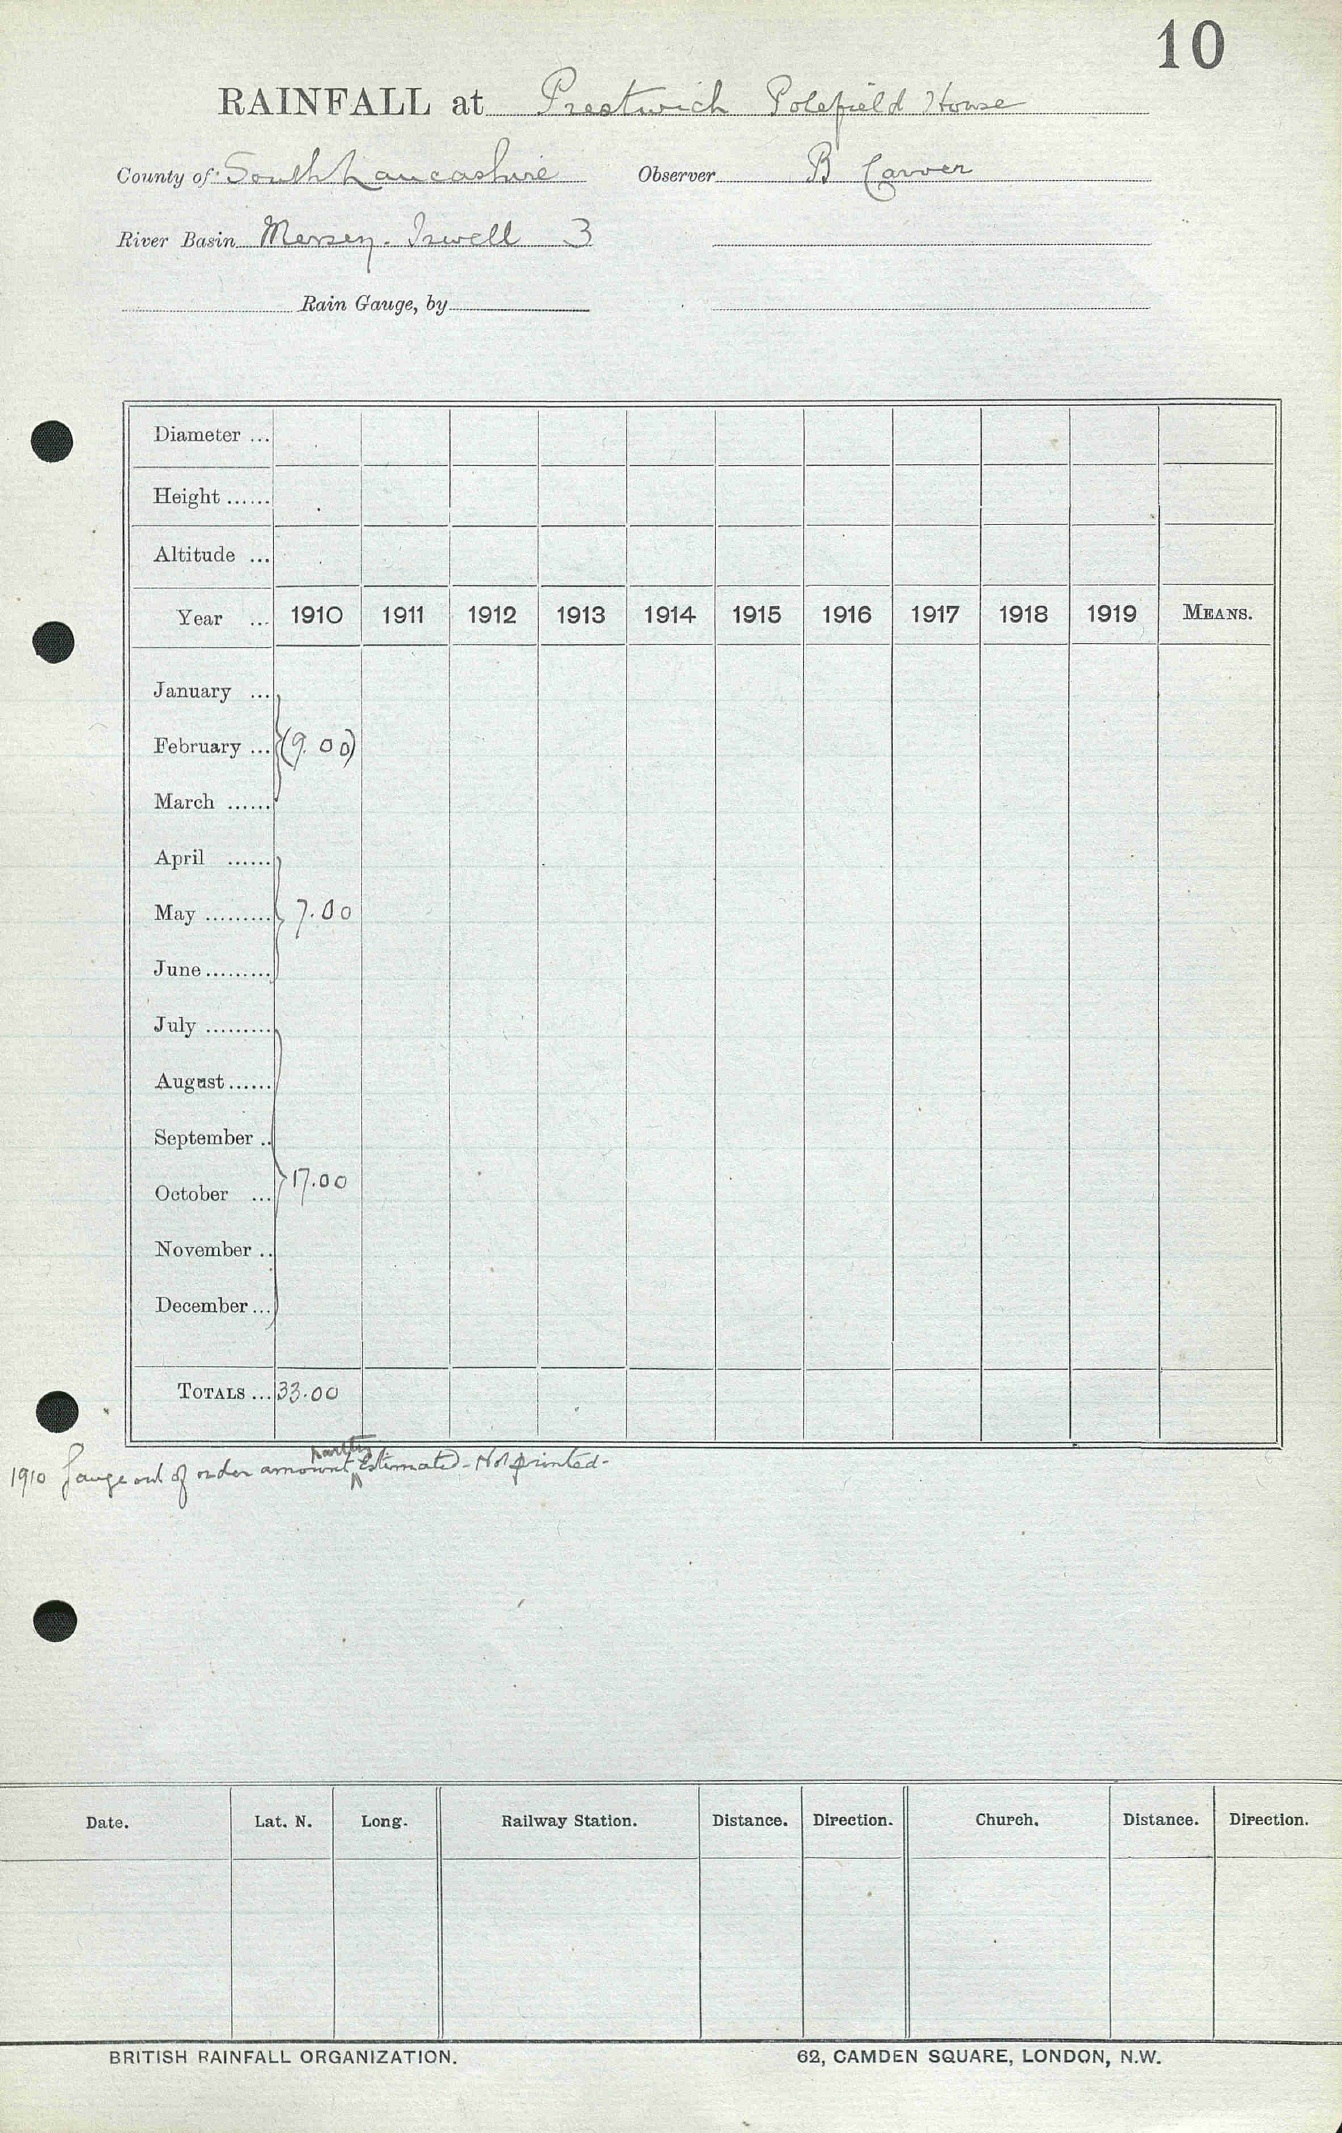 10
RAINFALL at Prestwich Polefield House
County of South Lancashire Observer B Carver
River Basin Mersey. Irwell 3
Rain Gauge, by
Diameter ...
Height ......
Altitude ...
Year ... 1910 1911 1912 1913 1914 1915 1916 1917 1918 1919 MEANS.
January ...
February ... (9.00)
March ......
April ......
May ......... 7.00
June .........
July .........
August ......
September ..
October ... 17.00
November ..
December ...
TOTALS ... 33.00
partly
1910 Gauge out of order amount Estimated - Not printed -
Date. Lat. N. Long. Railway Station. Distance. Direction. Church. Distance. Direction.
BRITISH RAINFALL ORGANIZATION. 62, CAMDEN SQUARE, LONDON, N.W.